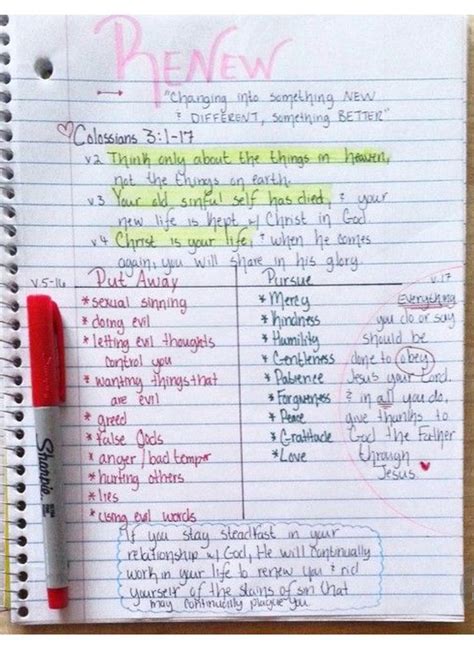 RENEW
"Changing into something NEW
& DIFFERENT, something BETTER"
Colossians 3:1-17
v.2 Think only about the things in heaven,
not the things on earth.
v.3 Your old, sinful self has died, & your
new life is kept w/ Christ in God.
v.4 Christ is your life, & when he comes
again, you will share in his glory.
v.5-16
Put Away
*sexual sinning
*doing evil
*letting evil thoughts
control you
*wanting things that
are evil
*greed
*false Gods
*anger/bad temper
*hurting others
*lies
*using evil words
Pursue
*Mercy
*Kindness
*Humility
*Gentleness
*Patience
*Forgiveness
*Peace
*Gratitude
*Love
v.17
Everything
you do or say
should be
done to obey
Jesus your Lord.
& in all you do,
give thanks to
God the Father
through
Jesus
If you stay steadfast in your
relationship w/ God, He will continually
work in your life to renew you & rid
yourself of the stains of sin that
may continually plague you
Sharpie